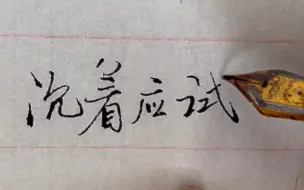 沉着应试